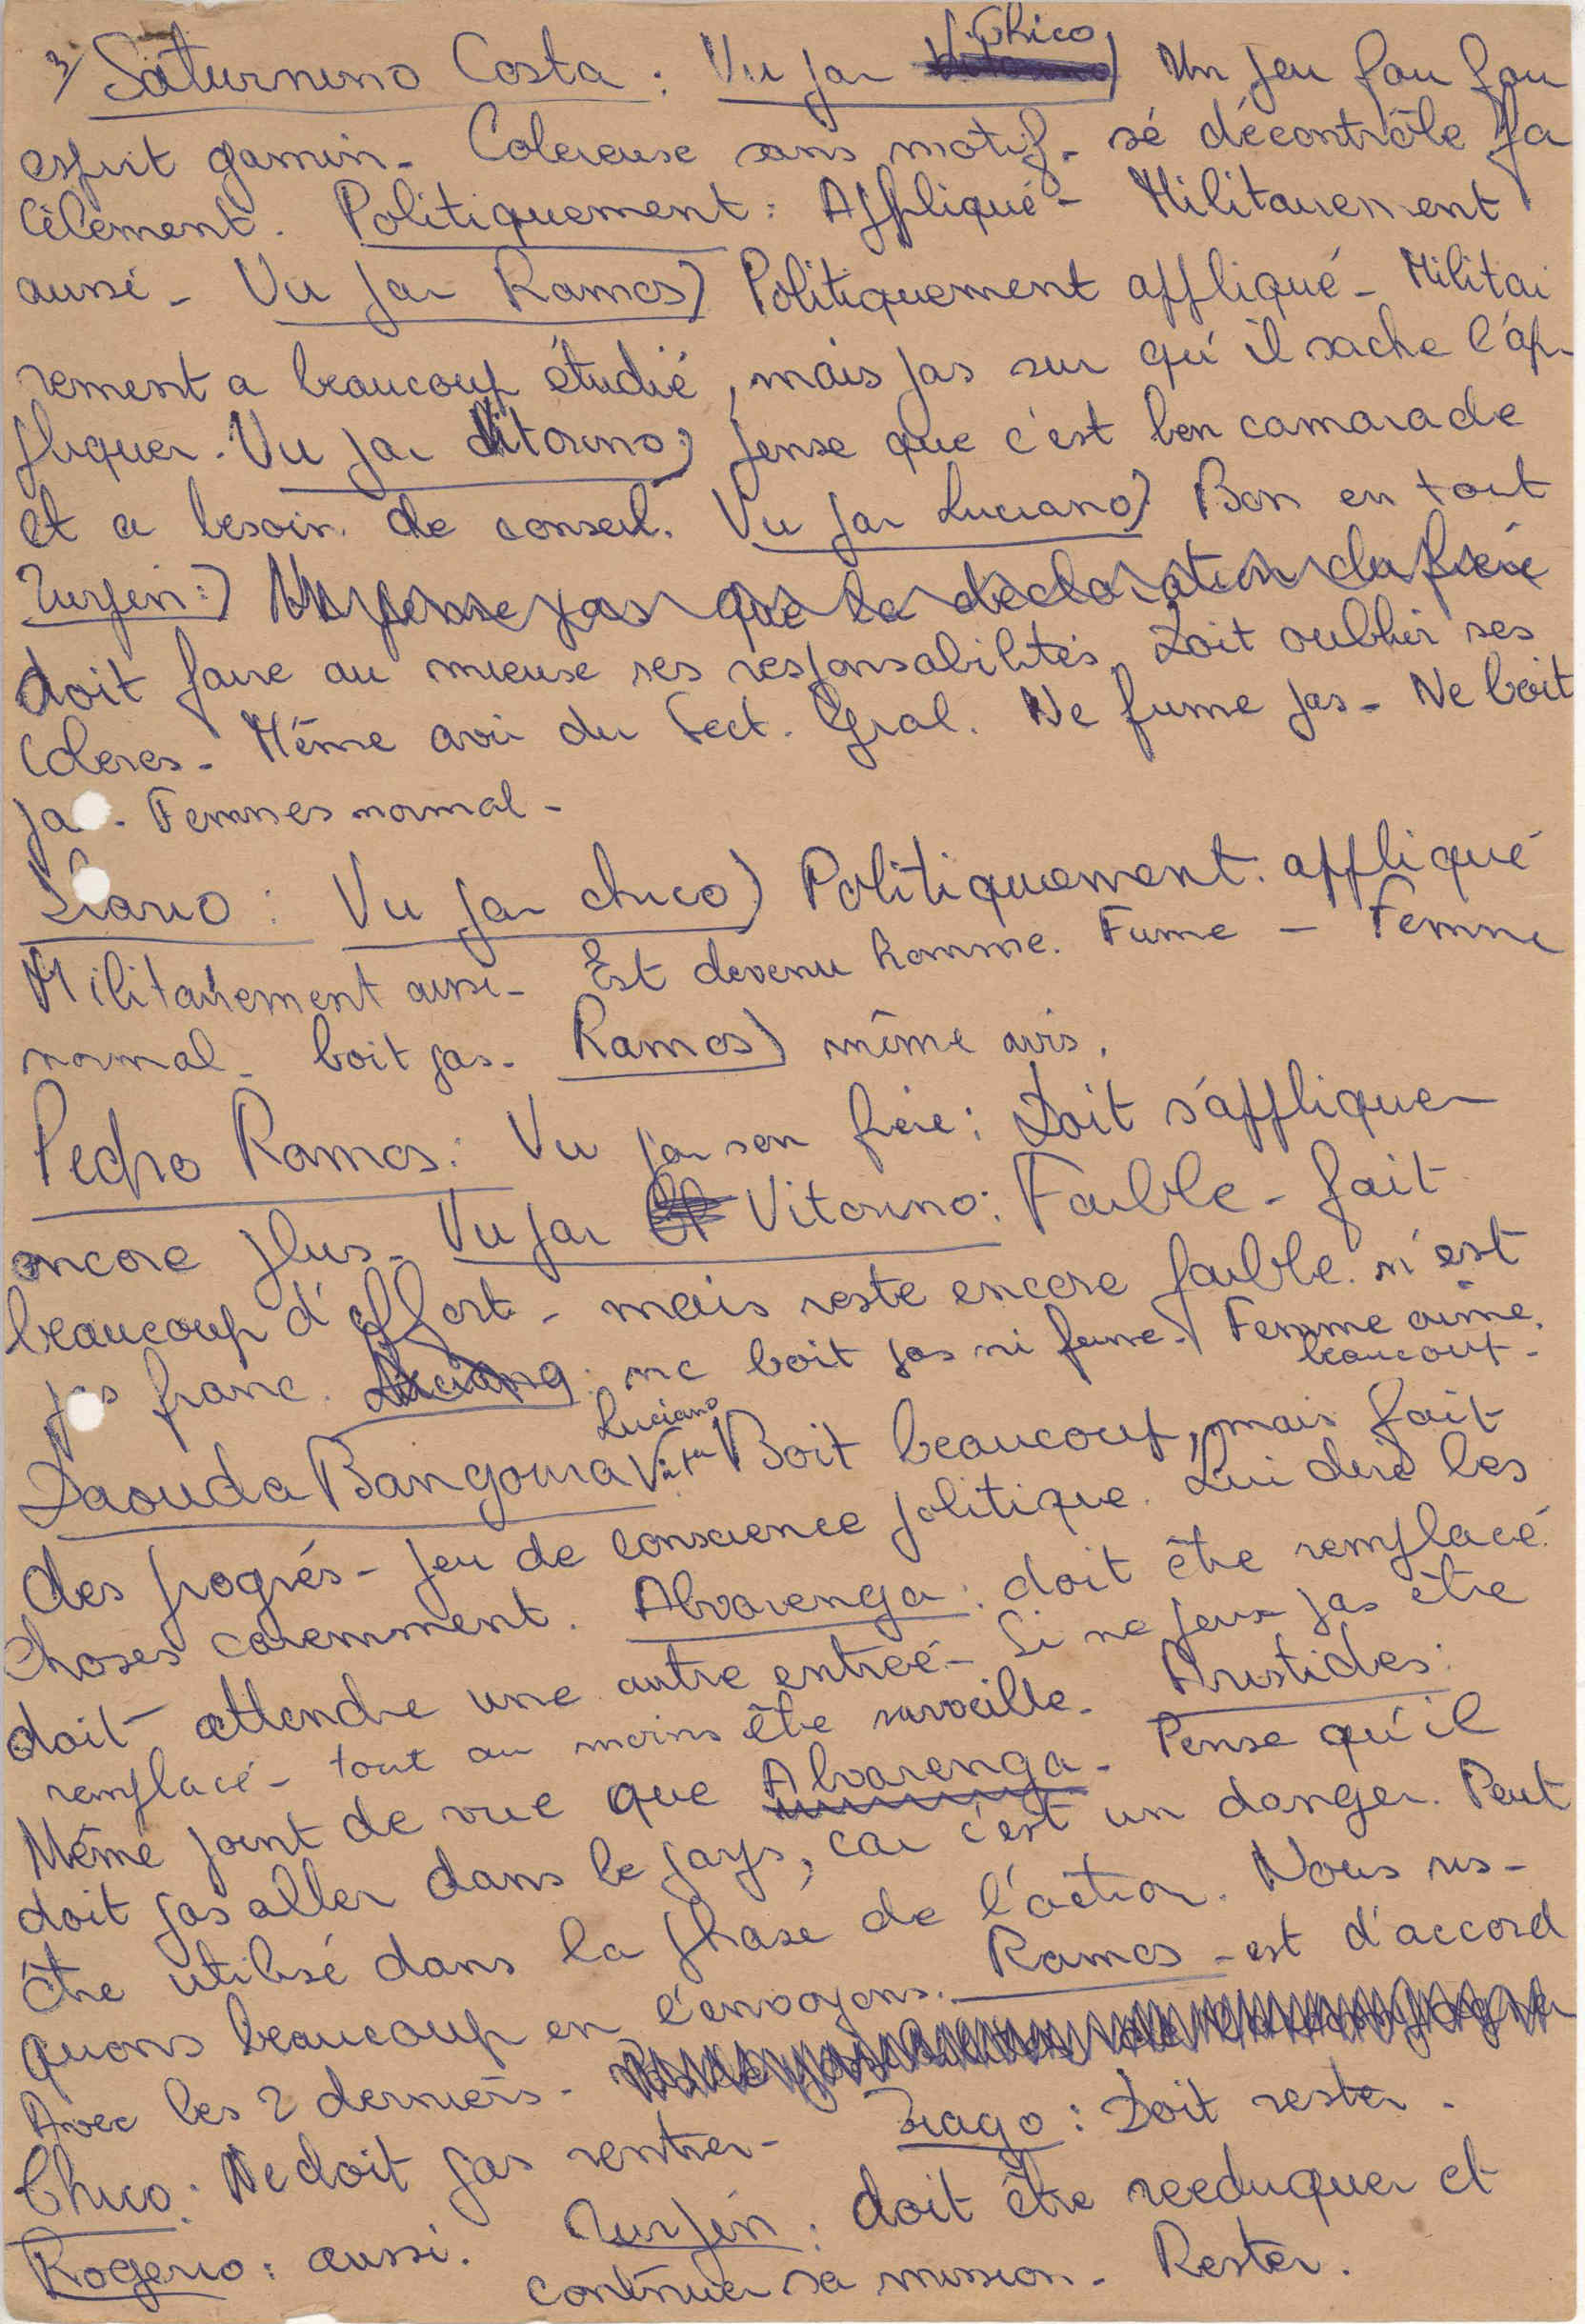 3/ Saturnino Costa : Vu par Chico) Un peu fou fou
esprit gamin - Colereuse sans motif - sé décontrôle fa
cilement. Politiquement : Appliqué - Militairement
aussi - Vu par Ramos) Politiquement appliqué - Militai
rement a beaucoup étudié, mais pas sur qu'il sache l'ap-
pliquer. Vu par Vitorino) pense que c'est bon camarade
et a besoin de conseil. Vu par Luciano) Bon en tout
Turpin :) Ne pense pas que la déclaration du frère
doit faire au mieuse ses responsabilités. Doit oublier ses
coleres - Même avis du Sect. Gral. Ne fume pas - Ne boit
pas. Femmes normal -
Diario : Vu par chico) Politiquement. appliqué
Militairement aussi - Est devenu homme. Fume - Femme
normal - boit pas - Ramos) même avis.
Pedro Ramos : Vu par son frère : Doit s'appliquer
encore plus - Vu par Vitorino : Faible - fait
beaucoup d'effort - mais reste encore faible. n'est
pas franc. Luciano : ne boit pas ni fume - Femme aime
beaucoup -
Daouda Bangoura Vu par Luciano Boit beaucoup, mais fait
des progrés - peu de conscience politique. Lui dire les
choses caremment. Alvarenga : doit être remplacé.
doit attendre une autre entreé - Si ne peux pas être
remplacé - tout au moins être surveille - Aristides :
Même point de vue que Alvarenga - Pense qu'il
doit pas aller dans le pays, car c'est un danger. Peut
être utilisé dans la phase de l'action. Nous ris-
quons beaucoup en l'envoyons. Ramos - est d'accord
Avec les 2 derniers -
Chico : Ne doit pas rentrer - Tiago : Doit rester.
Rogerio : aussi. Turpin : doit être reeduquer et
continuer sa mission - Rester.